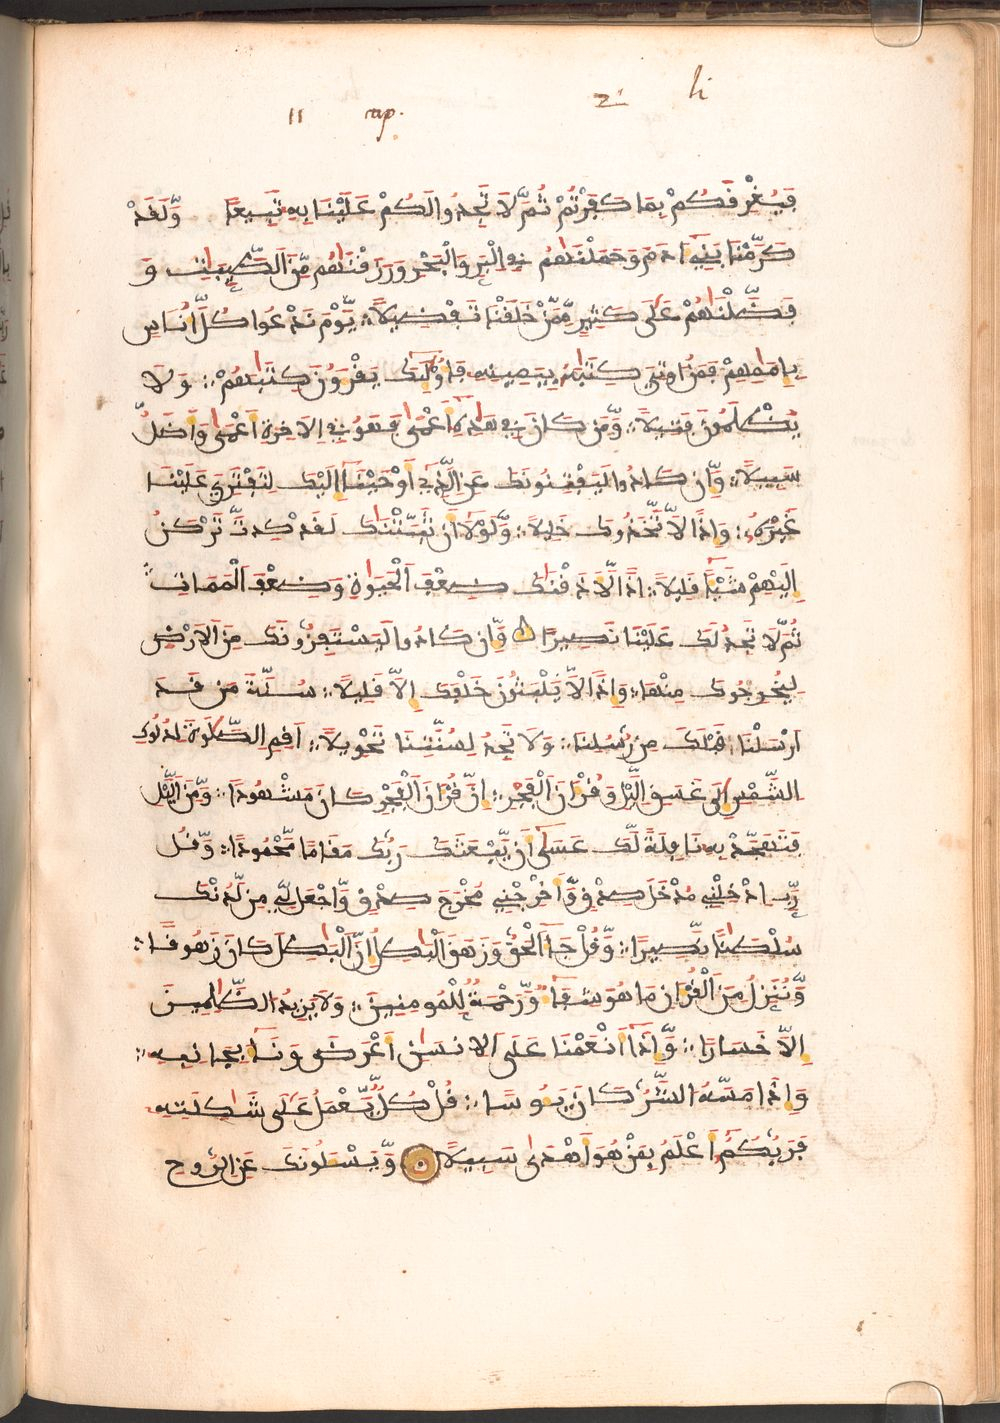 li 2 cap. 11
فَيُغْرِقَكُم بِمَا كَفَرْتُمْ ثُمَّ لَا تَجِدُوا لَكُمْ عَلَيْنَا بِهِ تَبِيعًا وَّلَقَدْ
كَرَّمْنَا بَنِي ادَمَ وَحَمَلْنَاهُمْ فِي الْبَرِّ وَالْبَحْرِ وَرَزَقْنَاهُم مِّنَ الطَّيِّبَاتِ وَ
فَضَّلْنَاهُمْ عَلَى كَثِيرٍ مِّمَّنْ خَلَقْنَا تَفْضِيلًا يَّوْمَ نَدْعُوا كُلَّ أُنَاسٍ
بِإِمَامِهِمْ فَمَنُ اوتِيَ كِتَابَهُ بِيَمِينِهِ فَأُوْلَئِكَ يَقْرَءُونَ كِتَابَهُمْ وَلَا
يُظْلَمُونَ فَتِيلًا وَّمَن كَانَ فِي هَذِهِ أَعْمَى فَهُوَ فِي الَاخِرَةِ أَعْمَى وَأَضَلُّ
سَبِيلًا وَّإِن كَادُوا لَيَفْتِنُونَكَ عَنِ الَّذِي أَوْحَيْنَا إِلَيْكَ لِتَفْتَرِيَ عَلَيْنَا
غَيْرَهُ وَإِذًا لَّاتَّخَذُوكَ خَلِيلًا وَّلَوْلَا أَن ثَبَّتْنَاكَ لَقَدْ كِدتَّ تَرْكَنُ
إِلَيْهِمْ شَيْئًا قَلِيلًا إِذًا لَّأَذَقْنَاكَ ضِعْفَ الْحَيَوةِ وَضِعْفَ الْمَمَاتِ
ثُمَّ لَا تَجِدُ لَكَ عَلَيْنَا نَصِيرًا وَّإِن كَادُوا لَيَسْتَفِزُّونَكَ مِنَ الَارْضِ
لِيُخْرِجُوكَ مِنْهَا وَإِذًا لَّا يَلْبَثُونَ خَلْفَكَ إِلَّا قَلِيلًا سُنَّةَ مَن قَدَ
ارْسَلْنَا قَبْلَكَ مِن رُّسُلِنَا وَلَا تَجِدُ لِسُنَّتِنَا تَحْوِيلًا اقِمِ الصَّلَوةَ لِدُلُوكِ
الشَّمْسِ إِلَى غَسَقِ الَّيْلِ وَقُرْانَ الْفَجْرِ إِنَّ قُرْانَ الْفَجْرِ كَانَ مَشْهُودًا وَّمِنَ الَّيْلِ
فَتَهَجَّدْ بِهِ نَافِلَةً لَّكَ عَسَى أَن يَّبْعَثَكَ رَبُّكَ مَقَامًا مَّحْمُودًا وَّقُل
رَّبِّ ادْخِلْنِي مُدْخَلَ صِدْقٍ وَّأَخْرِجْنِي مُخْرَجَ صِدْقٍ وَّاجْعَل لِّي مِن لَّدُنْكَ
سُلْطَانًا نَّصِيرًا وَّقُلْ جَا الْحَقُّ وَزَهَقَ الْبَاطِلُ إِنَّ الْبَاطِلَ كَانَ زَهُوقًا
وَّنُنَزِّلُ مِنَ الْقُرْانِ مَا هُوَ شِفَا وَّرَحْمَةٌ لِّلْمُومِنِينَ وَلَا يَزِيدُ الظَّالِمِينَ
إِلَّا خَسَارًا وَّإِذَا أَنْعَمْنَا عَلَى الِانسَانِ أَعْرَضَ وَنَئَا بِجَانِبِهِ
وَإِذَا مَسَّهُ الشَّرُّ كَانَ يَئُوسًا قُلْ كُلٌّ يَّعْمَلُ عَلَى شَاكِلَتِهِ
فَرَبُّكُمْ أَعْلَمُ بِمَنْ هُوَ أَهْدَى سَبِيلًا وَّيَسْئَلُونَكَ عَنِ الرُّوحِ